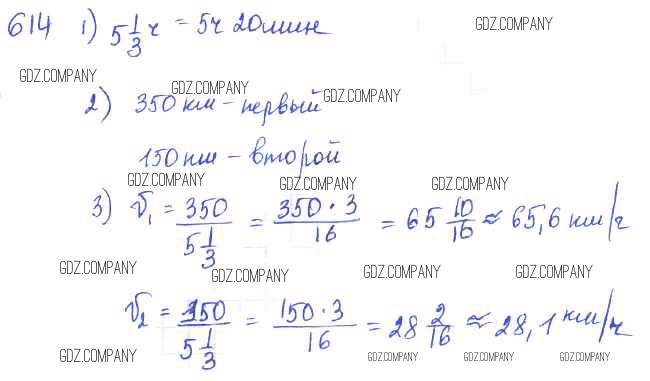 614 1) 5 1/3 ч = 5ч 20мин
GDZ.COMPANY
GDZ.COMPANY
GDZ.COMPANY GDZ.COMPANY
2) 350 км - первый
150 км - второй
GDZ.COMPANY GDZ.COMPANY GDZ.COMPANY
3) V₁ = 350 / 5 1/3 = 350 · 3 / 16 = 65 10/16 ≈ 65,6 км/ч
GDZ.COMPANY GDZ.COMPANY GDZ.COMPANY GDZ.COMPANY
V₂ = 150 / 5 1/3 = 150 · 3 / 16 = 28 2/16 ≈ 28,1 км/ч
GDZ.COMPANY GDZ.COMPANY GDZ.COMPANY GDZ.COMPANY